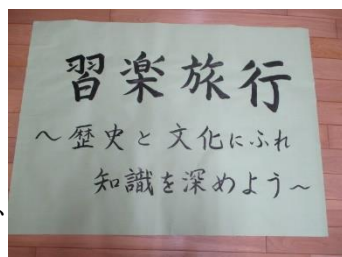 習楽旅行
～歴史と文化にふれ
知識を深めよう～
、